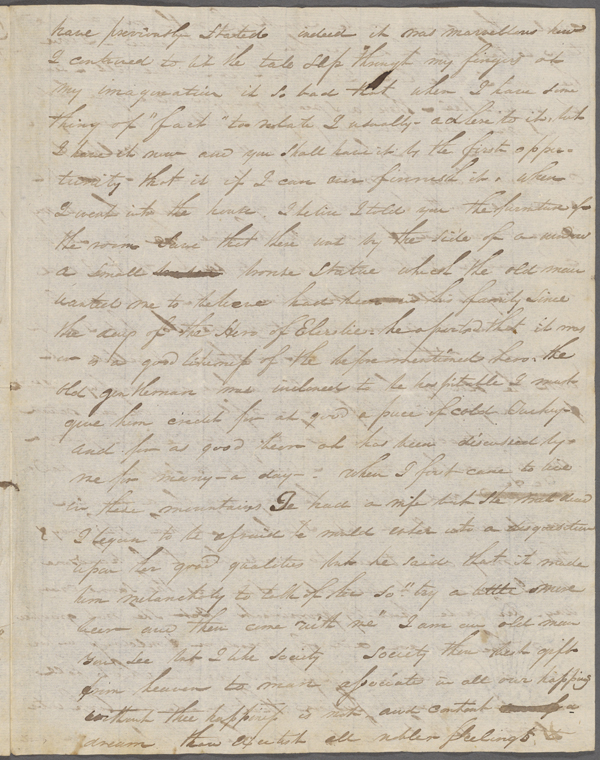 have previously stated indeed it was marvellous how
I contrived to let the tale slip through my fingers of
my imagination it so bad that when I have some
thing of "fact" to relate I usually adhere to it, but
I have it now and you shall have it by the first oppor-
tunity that is if I can ever finnish it. When
I went into the house, I believe I told you the furniture of
the room save that there was by the side of a window
a small bronze statue which the old man
wanted me to believe had been in his family since
the days of the Hero of he asserted that it was
a good likeness of the beforementioned hero. the
old gentleman was inclined to be hospitable I must
give him credit for as good a piece of cold Turkey
and for as good beer as has been discussed by
me for many a day. When I first came to live
in these mountains he had a wife but she was dead
I began to be afraid he would enter into a disquisition
upon her good qualities but he said that it made
him melancholy to talk of her so "try a little more
beer and then come with me" I am an old man
you see but I like society Society thou best gift
from heaven to man associate in all our happiness
without thee happiness is not and content
dream thou all nobler feelings to